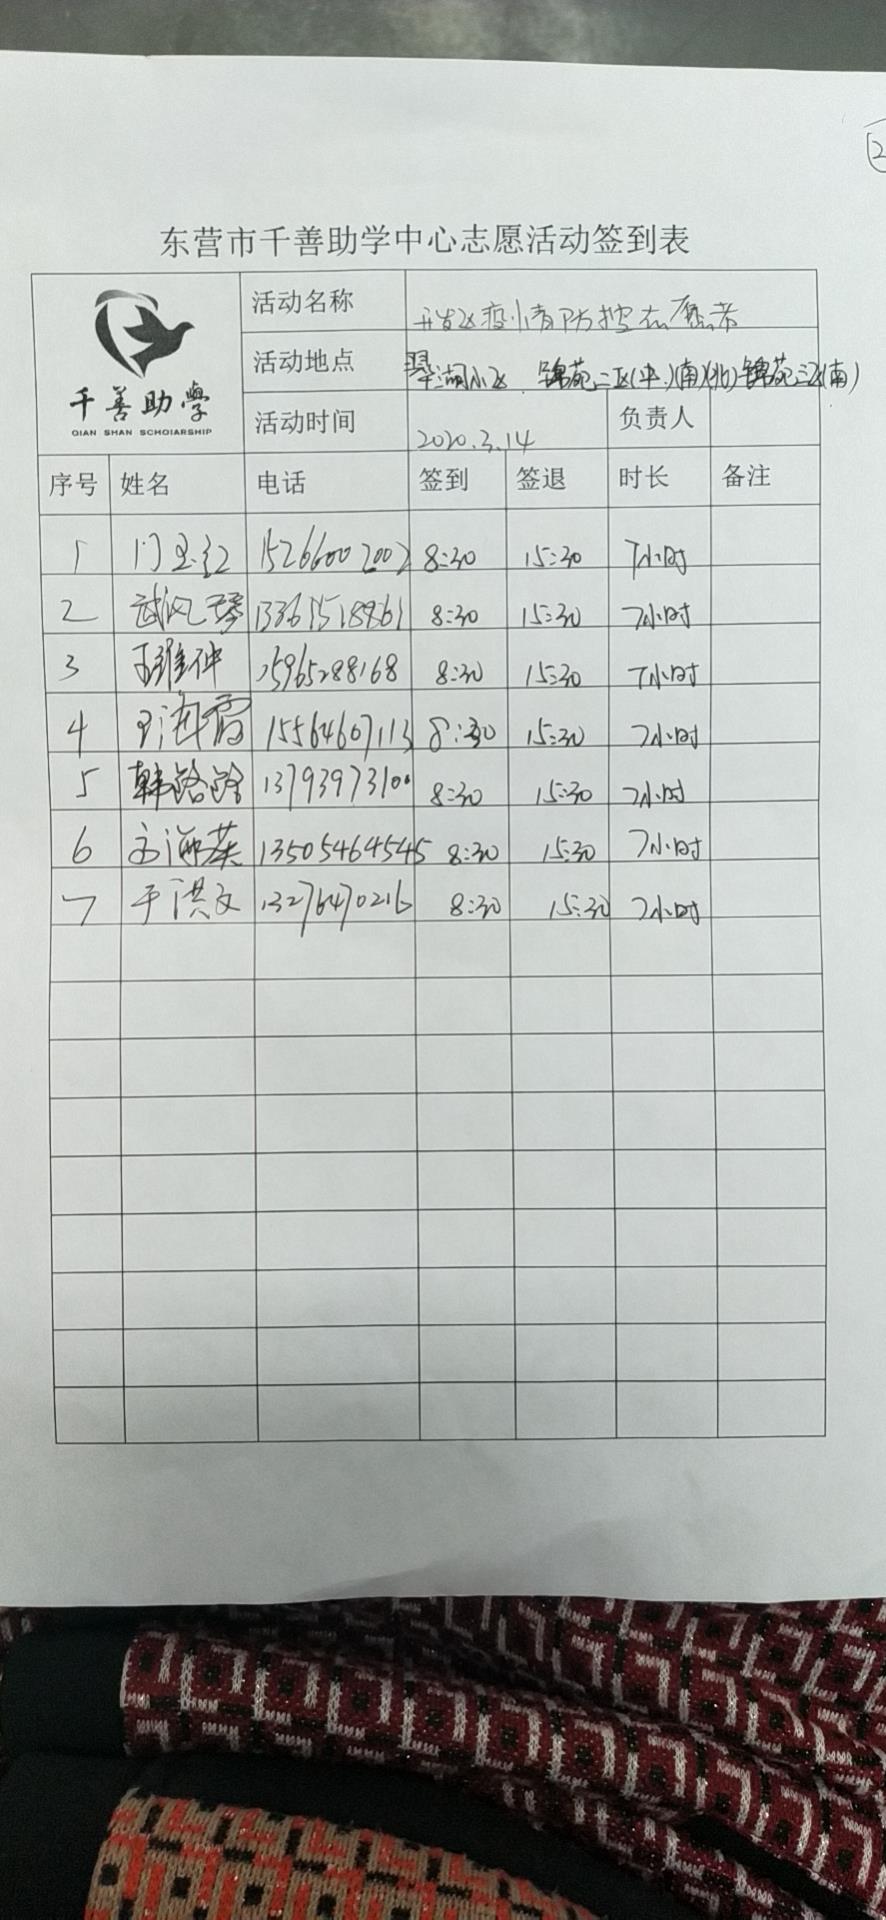 2
东营市千善助学中心志愿活动签到表
千善助學
QIAN SHAN SCHOIARSHIP
活动名称 开发区疫情防控志愿者
活动地点 翠湖小区 锦苑二区(中)(南)(北)锦苑三区(南)
活动时间 2020.3.14 负责人
序号 姓名 电话 签到 签退 时长 备注
1 门玉红 15266002002 8:30 15:30 7小时
2 武风琴 13361518961 8:30 15:30 7小时
3 15965288168 8:30 15:30 7小时
4 王海霞 15564607113 8:30 15:30 7小时
5 韩路路 13793973100 8:30 15:30 7小时
6 海英 13505464545 8:30 15:30 7小时
7 于洪文 13276470216 8:30 15:30 7小时